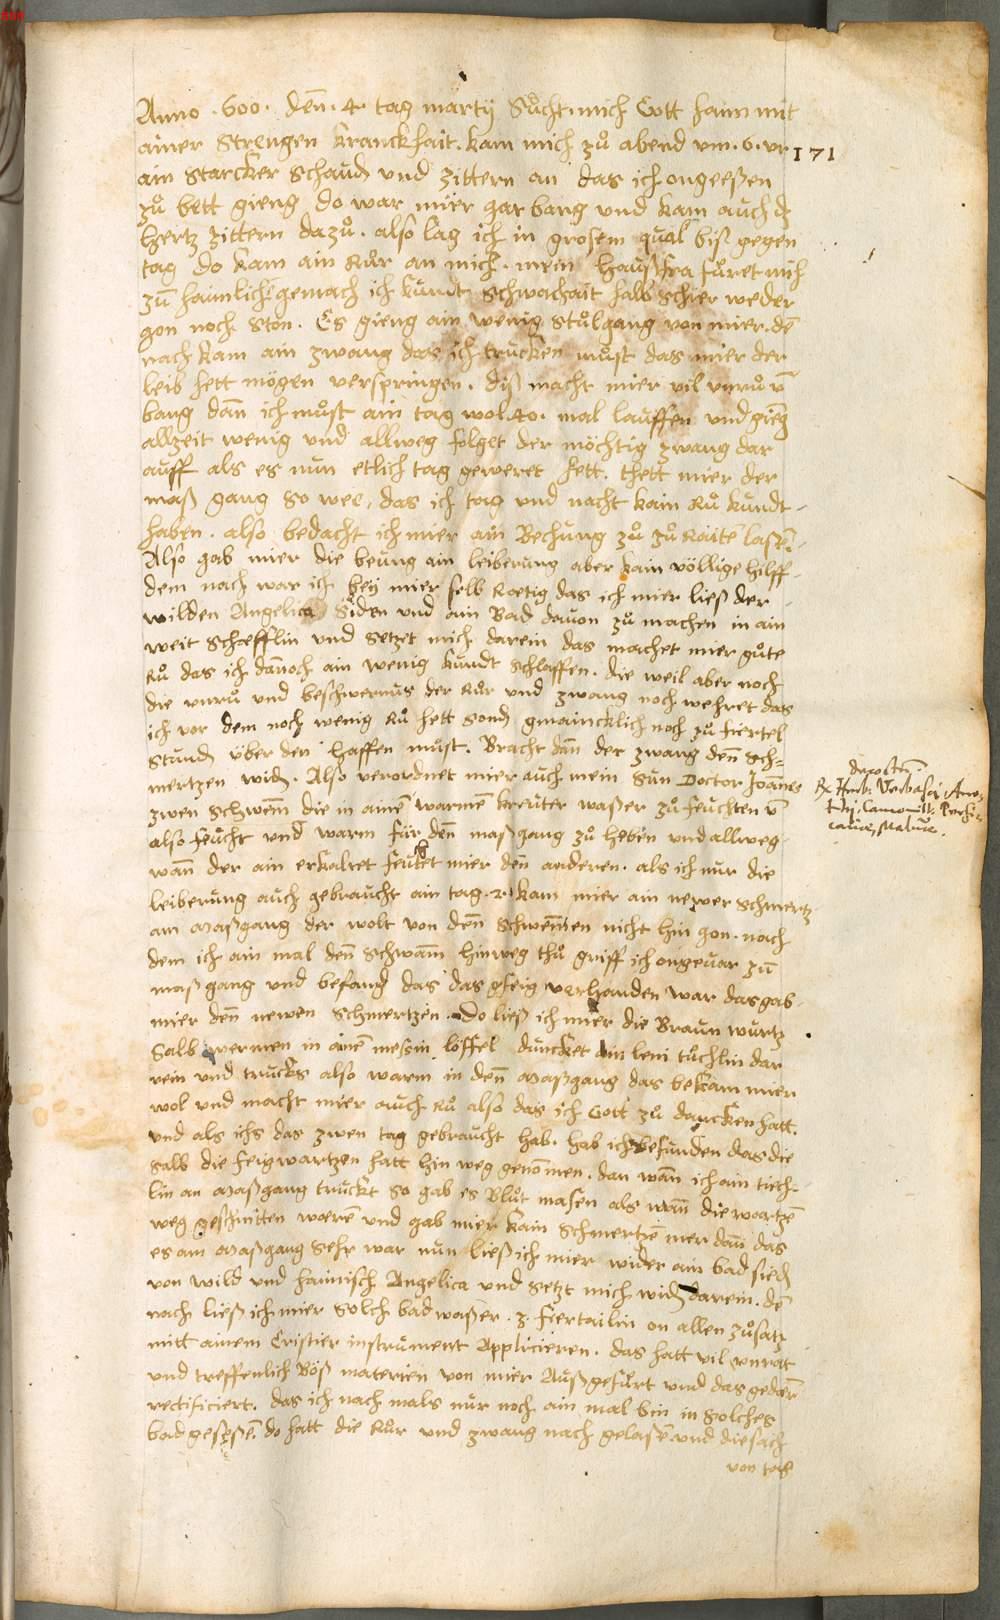 Anno .600. den̄ .4. tag martij Sůcht mich Gott haim mit
ainer Strengen kranckhait. kam mich zů abend vm .6. vr
171
ain Starcker Schaud͛ und zittern an das ich ongeeßen
zů bett gieng do war mier gar bang und kam auch dz
hertz zittern dazů. also lag ich in grosem qual biß gegen
tag do kam ain Růr an mich. mein haußfra fůret mich
zům haimlich gemach ich kundt schwachait halb schier weder
gon noch ston. Es gieng ain wenig stůlgang von mier. de͞
nach kam ain zwang das ich trucken můst das mier der
leib hett mögen verspringen. diß macht mier vil vnrů v͞
bang dan̄ ich můst ain tag wol .40. mal lauffen und gieng
allzeit wenig und allweg folget der möchtig zwang dar
auff als es nun etlich tag geweret hett. thett mier der
maß gang so wee, das ich tag und nacht kain Rů kundt
haben. also bedacht ich mier ain Bechung zů zů Raite͞ laße͞.
Also gab mier die beung ain leiberung aber kain völlige hilff
dem nach war ich beÿ mier selb Roetig das ich mier ließ der
wilden Angelica Siden und ain Bad dauon zů machen in ain
weit schefflin und setzet mich darein das machet mier gůte
Rů das ich dan̄och ain wenig kundt schlaffen. die weil aber noch
die vnrů und beschwernus der Růr und zwang noch wehret das
ich vor dem noch wenig Rů hett sond͛ gmaincklich noch zů fiertel
stund͛ über den haffen můst. Bracht dan̄ der zwang den̄ sch=
mertzen wid͛. Also verordnet mier auch mein Sun Doctor Joannes
zwen Schwem̄ die in aine͞ warme͞ kreuter waßer zů feuchten v͞
also feucht und warm für den̄ maßgang zů heben und allweg
wan̄ der ain erkaltet feuhet mier den̄ anderen. als ich nur die
leiberung auch gebraucht ain tag .2. kam mier ain newer schmertz
am Maßgang der wolt von den̄ Schwem̄en nicht hin gon. nach
dem ich ain mal den̄ schwam̄ hinweg thů griff ich ongeuar zům
maß gang und befand das das gfeig verhanden war das gab
mier den̄ newen schmertzen. Do ließ ich mier die Braun wurtz
Salb wermen in aine͞ meßin löffel duncket ain leni tůchlin dar
rein und trucks also warm in den̄ Maßgang das bekam mier
wol und macht mier auch Rů also das ich Gott zů dancken hatt.
und als ichs das zwen tag gebraucht hab. hab ich befunden das die
salb die feigwartzen hatt hin weg genom̄en. dan wan̄ ich ain tiech-
lin an Maßgang truckt so gab es Blůt masen als wan̄ die wartze͞
weg geschnitten were͞ und gab mier kain schmertze͞ mer dan̄ das
es am Maßgang sehr war nun ließ ich mier wider ain bad sied͛
von wild und haimisch Angelica und setzt mich wid͛ darein. de͞
nach ließ ich mier solch bad waßer .3. fiertailin on allen zůsatz
mitt ainem Cristier instrument Applicieren. das hatt vil vnrat
und treffenlich Böß materien von mier Außgefůrt und das gederm
rectificiert. das ich nach mals nur noch ain mal bin in solches
bad gesessse͞. do hatt die Růr und zwang nach gelaße͞ und die sach
von tag
Rx Herb: Verbasci